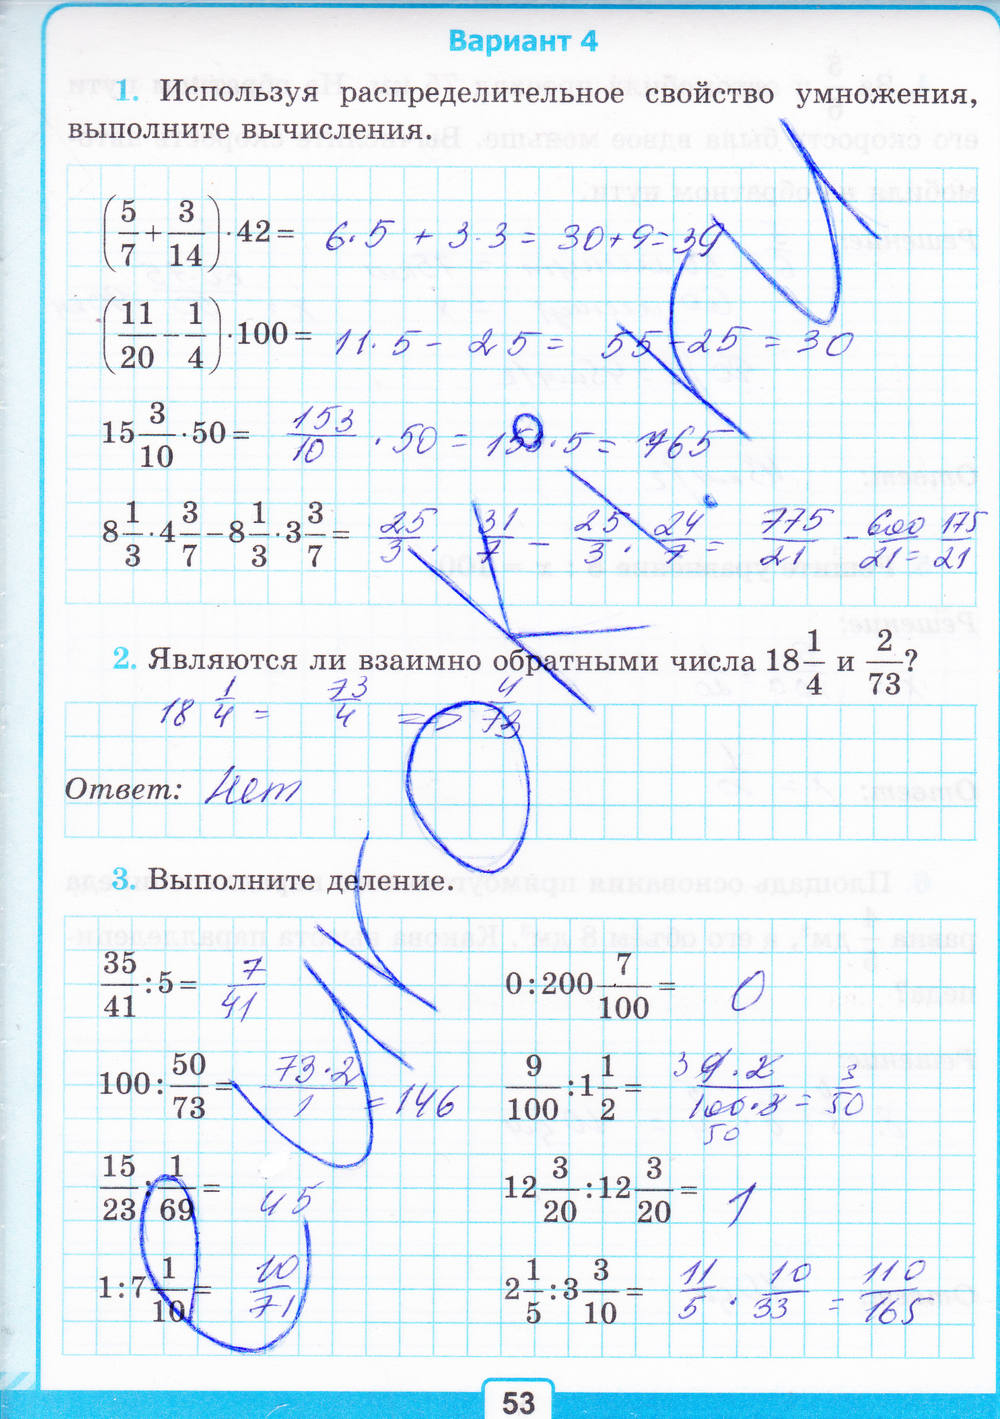 Вариант 4
1. Используя распределительное свойство умножения,
выполните вычисления.
(5/7 + 3/14) · 42 = 6·5 + 3·3 = 30+9=39
(11/20 − 1/4) · 100 = 11·5 − 25 = 55−25 = 30
15 3/10 · 50 = 153/10 · 50 = 153·5 = 765
8 1/3 · 4 3/7 − 8 1/3 · 3 3/7 = 25/3 · 31/7 − 25/3 · 24/7 = 775/21 − 600/21 = 175/21
2. Являются ли взаимно обратными числа 18 1/4 и 2/73?
18 1/4 = 73/4 => 4/73
Ответ: Нет
3. Выполните деление.
35/41 : 5 = 7/41
0 : 200 7/100 = 0
100 : 50/73 = 73·2/1 = 146
9/100 : 1 1/2 = 3 9·2/100·3 50 = 3/50
15/23 : 1/69 = 45
12 3/20 : 12 3/20 = 1
1 : 7 1/10 = 10/71
2 1/5 : 3 3/10 = 11/5 · 10/33 = 110/165
53